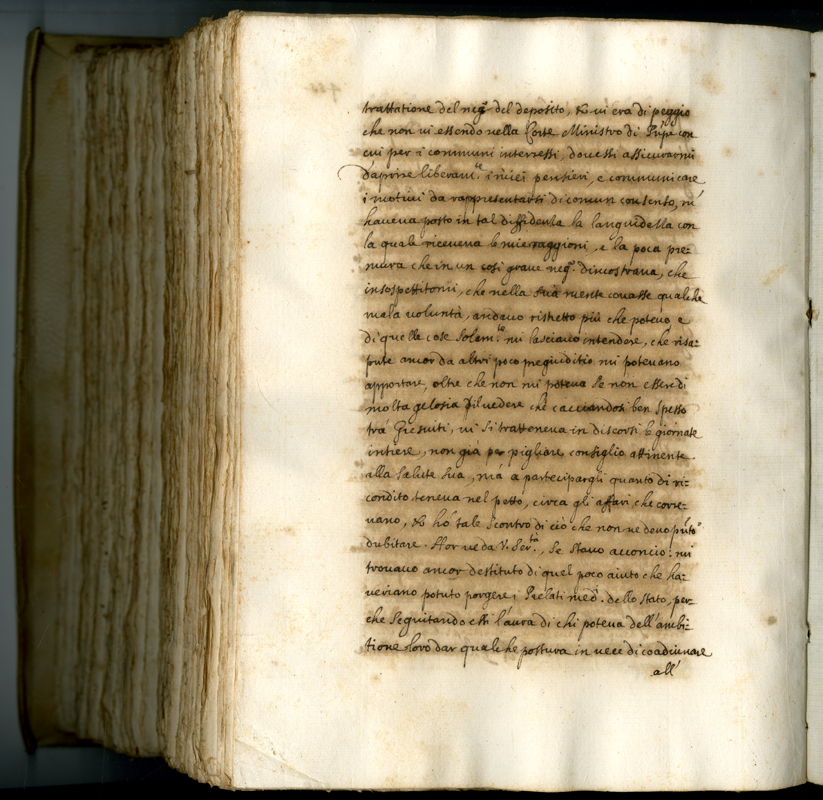 trattatione del neg.º del deposito, et vi era di peggio
che non vi essendo nella Corte Ministro di Pñpe con
cui per i communi interessi, dovessi assicurarmi
d'aprire liberam.te i miei pensieri, e communicare
i motivi da rappresentarsi di comun consenso, m'
haveva posto in tal diffidenza la languidezza con
la quale riceveva le mie raggioni, e la poca pre=
mura che in un così grave neg.º dimostrava, che
insospettitomi, che nella sua mente covasse qualche
mala voluntà, andavo ristretto più che potevo, e
di quelle cose solam.te mi lasciavo intendere, che risa=
pute ancor da altri poco pregiuditio mi potevano
apportare, oltre che non mi poteva se non esser di
molta gelosia il vedere che cacciandosi ben spesso
trà Giesuiti, vi si tratteneva in discorsi le giornate
intiere, non già per pigliare consiglio attinente
alla salute sua, mà a partecipargli quanto di ri=
condito teneva nel petto, circa gli affari che corre=
vano, et hò tale scontro di ciò che non ne devo pũto
dubitare. Hor veda V. Ser.tà, se stavo acconcio: mi
trovavo ancor destituto di quel poco aiuto che ha=
veriano potuto porgere i Prelati med.i dello Stato, per=
che seguitando essi l'aura di chi poteva dell'ambi=
tione loro dar qualche postura in vece di coadiuvare
all'